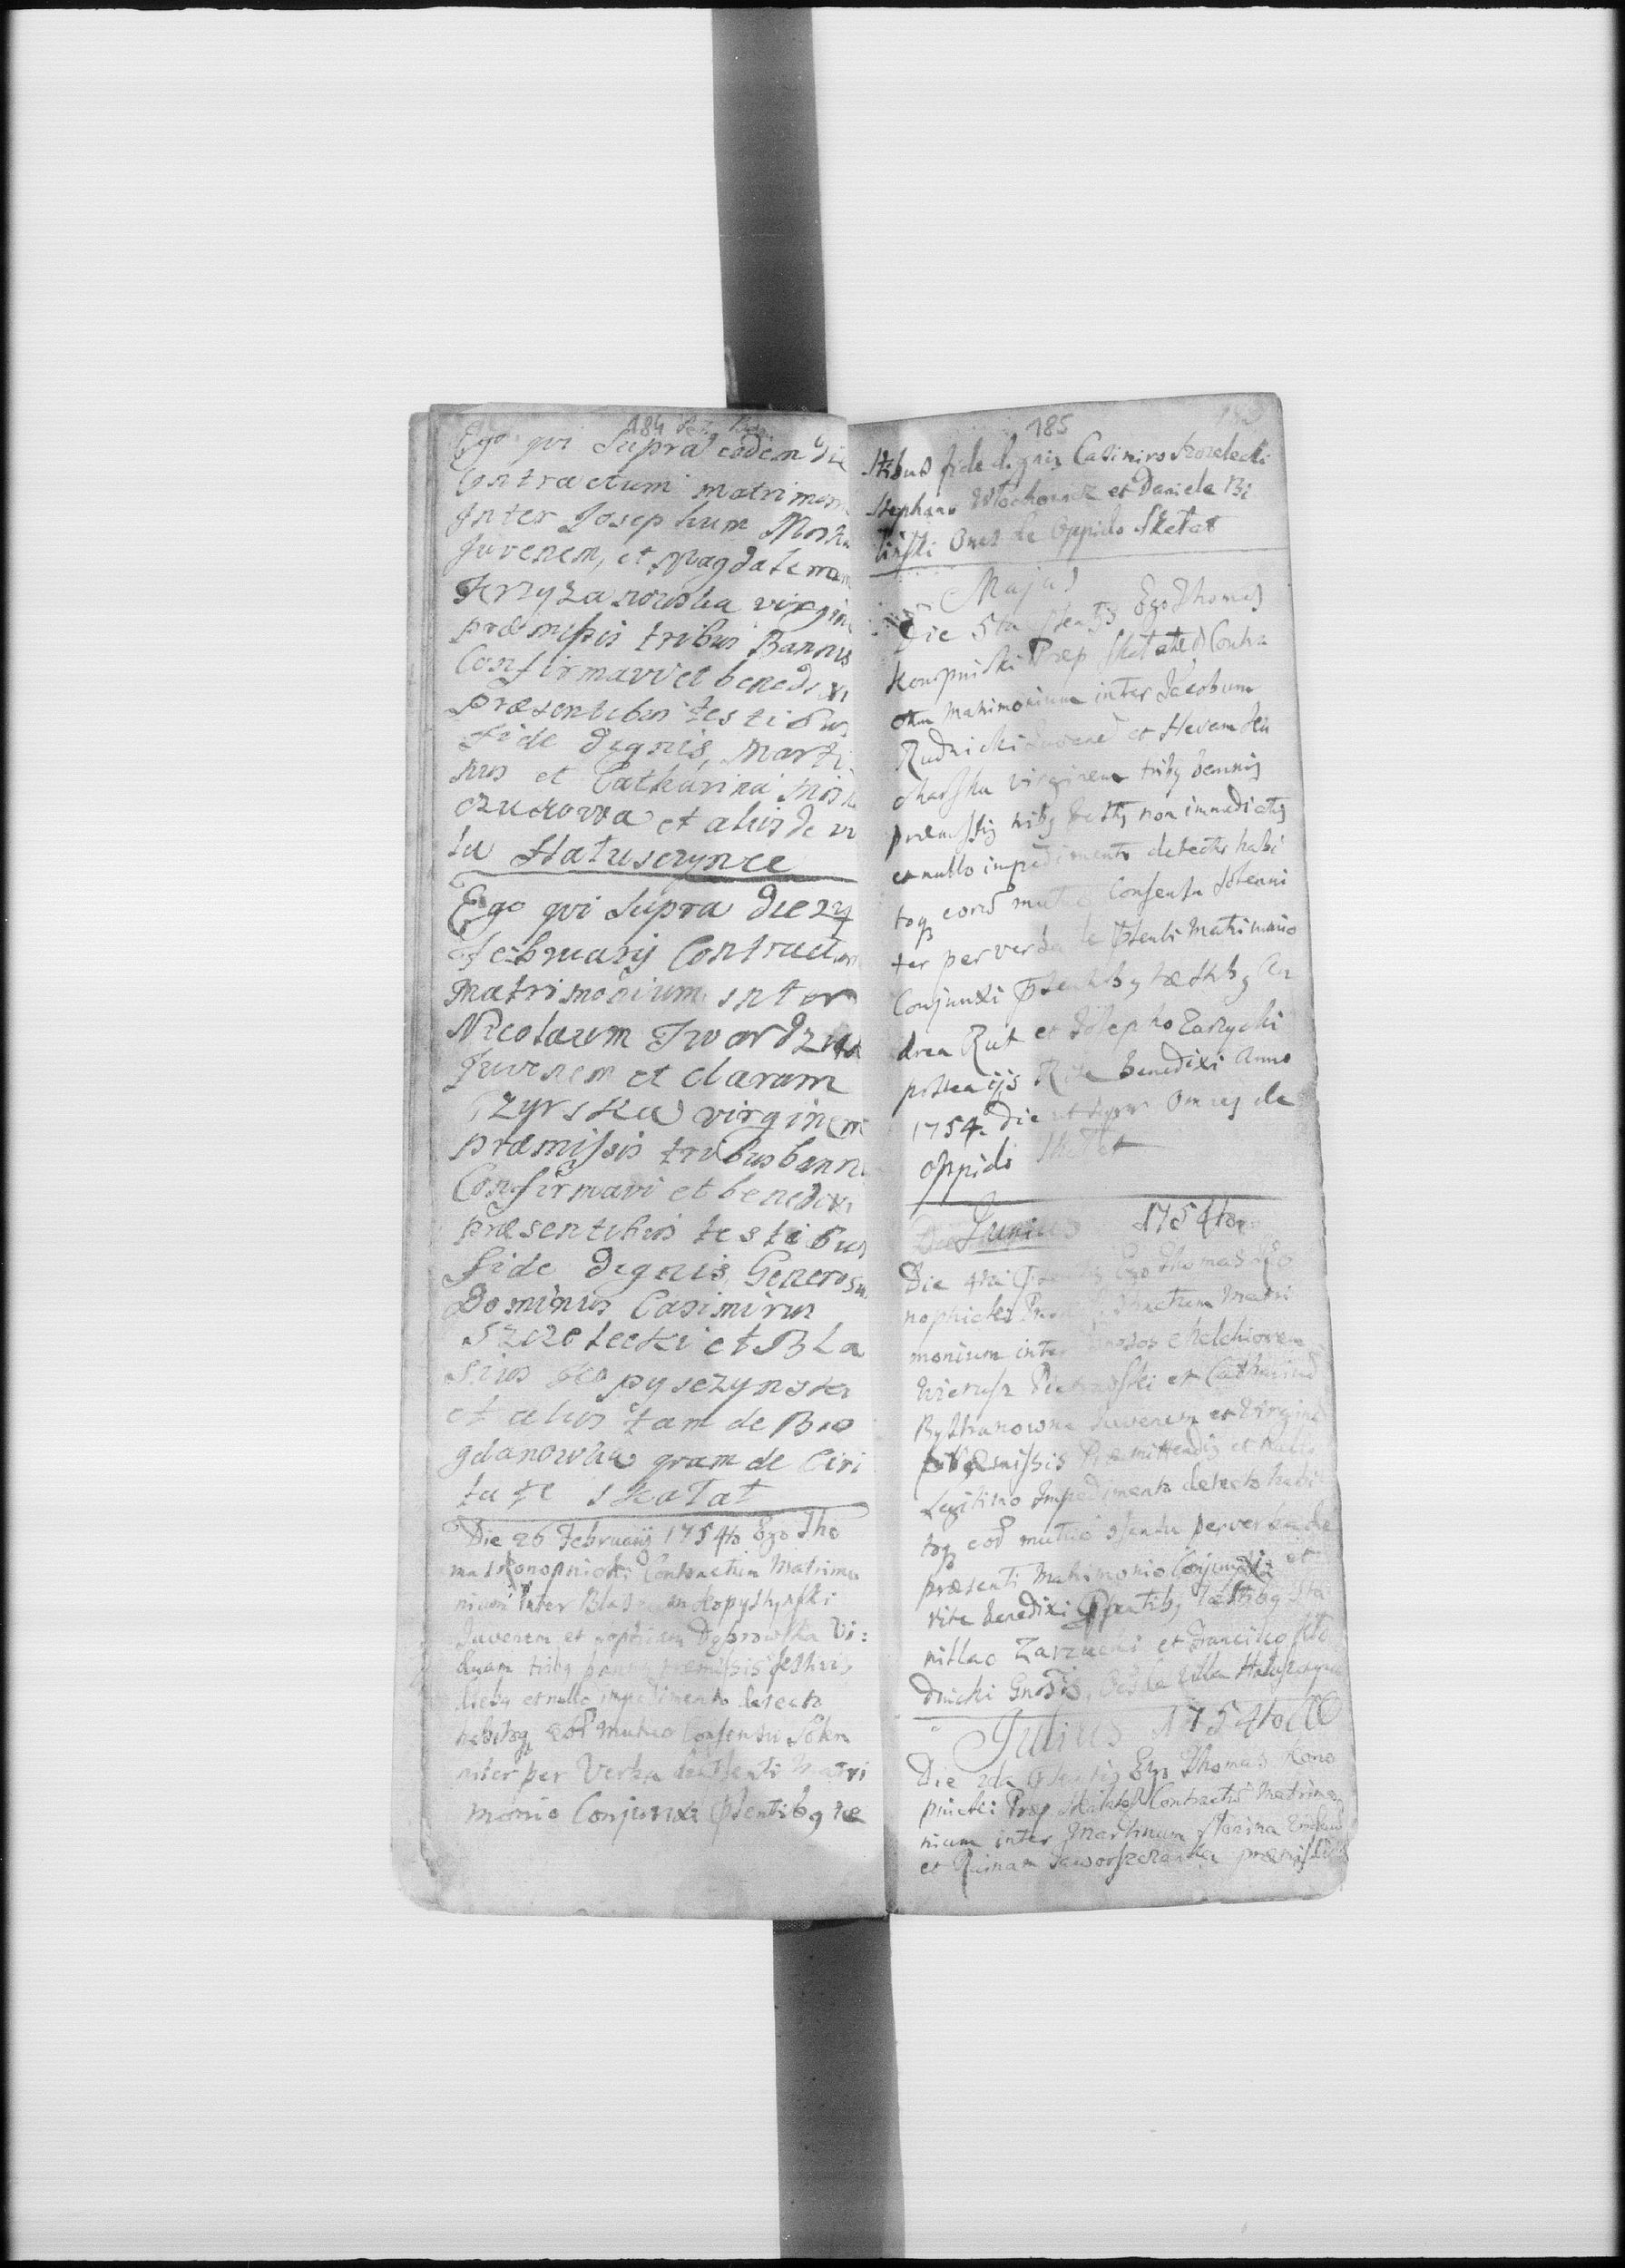 184
Ego qui Supra eodem die
Contractum matrimon
Inter Josephum Mosku
Juvenem, et Magdalenam
Krzyzanowska virgin
præmissis tribus Bannis
Confirmavi et benedixi
præsentibus testibus
Fide dignis, Marti
nus et Catharina Mos
czukowa et aliis de vi
la Hatusczynce
Ego qui Supra die 24
February Contractum
Matrimonium inter
Nicolaum Twardzik
Juvenem et claram
Zyrska virginem
præmissis tribus banni
Confirmavi et benedixi
præsentibus testibus
fide dignis, Generosus
Dominus Casimirus
Szczelecki et Bla
sius Kopysczynski
et alius tam de Bo
gdanowka quam de Civi
tate Skalat
Die 26 Februarij 1754to Ego Tho
mas Konopnicki Contractum Matrimo
nium inter Blasium Kopystynski
Juvenem et Dąbrowska Vi:
duam tribq bannis præmissis festivis
diebq et nullo impedimento detecto
habitoq eor mutuo Consensu Solem
niter per Verba de psenti Matri
monio Conjunxi psentibq te
185
stibus fide dignis Casimiro Szczelecki
Stephano Włochowicz et Daniele Bi
linski Ones de Oppido Skałat
Majus
Die 5ta psentis Ego Thomas
Konopnicki Præp Skalaten Contra
ctum Matrimonium inter Jacobum
Rudnicki Juvene et Hevam
virginem tribq bannis
præmissis tribq festis non immediatis
et nullo impedimento detecto habi
toq eorum mutuo Consensu Solenni
ter per verba de psenti Matrimonio
Conjunxi psentibq testibq An
drea Rut et Josepho Zarzycki
postea ijs Rite Benedixi Anno
1754. Die ut supra Omnes de
Oppido Skalat
Junius 1754to
Die 4ta psentis Ego Thomas Ko
nopnicki Contractum Matri
monium inter Gnosos Melchiorem
Wierusz Pietrasski et Catharina
Bystranowna Juvenem et Virgine
Præmissis Præmittendis et Nullo
Legitimo Impedimento detecto habi
toq eor mutuo Consensu per verba de
præsenti Matrimonio Conjunxi et
rite benedixi psentibq testibq Sta
nislao Zarzucki et Francisco
dnicki Gnosis, Oes de Villa Haluszczynce
Julius 1754to
Die 2da psentis Ego Thomas Kono
pnicki Præp Skalaten Contractu Matrimo
nium inter Martinum Słonina Viduu
et Reinam præmissis